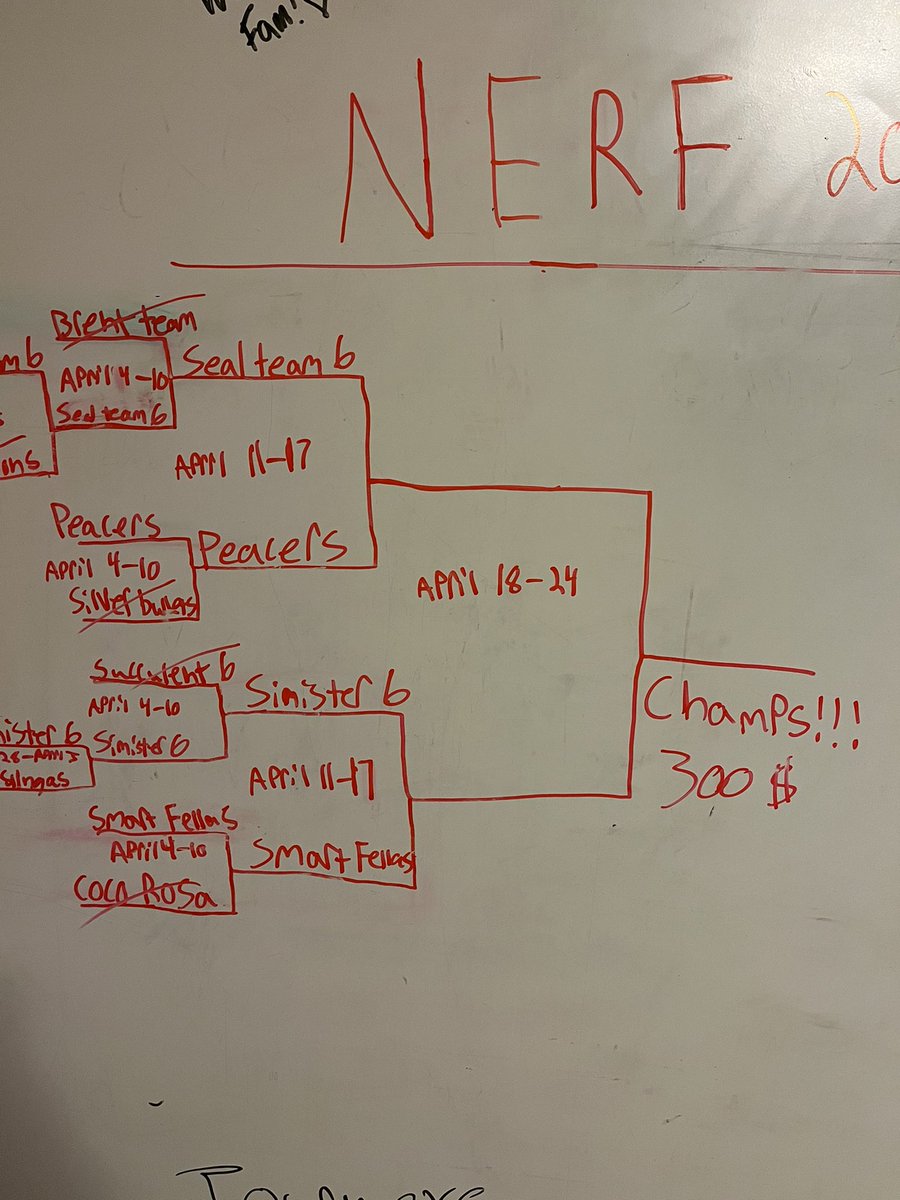 Fam
NERF 20
Brent team
m 6
April 4-10
Seal team 6
Seal team 6
ins
April 11-17
Peacers
April 4-10
Peacers
April 18-24
Succulent 6
April 4-10
Sinister 6
Sinister 6
nister 6
28-April 3
April 11-17
Champs!!!
300 $
Smart Fellas
April 4-10
Smart Fellas
Coco Rosa